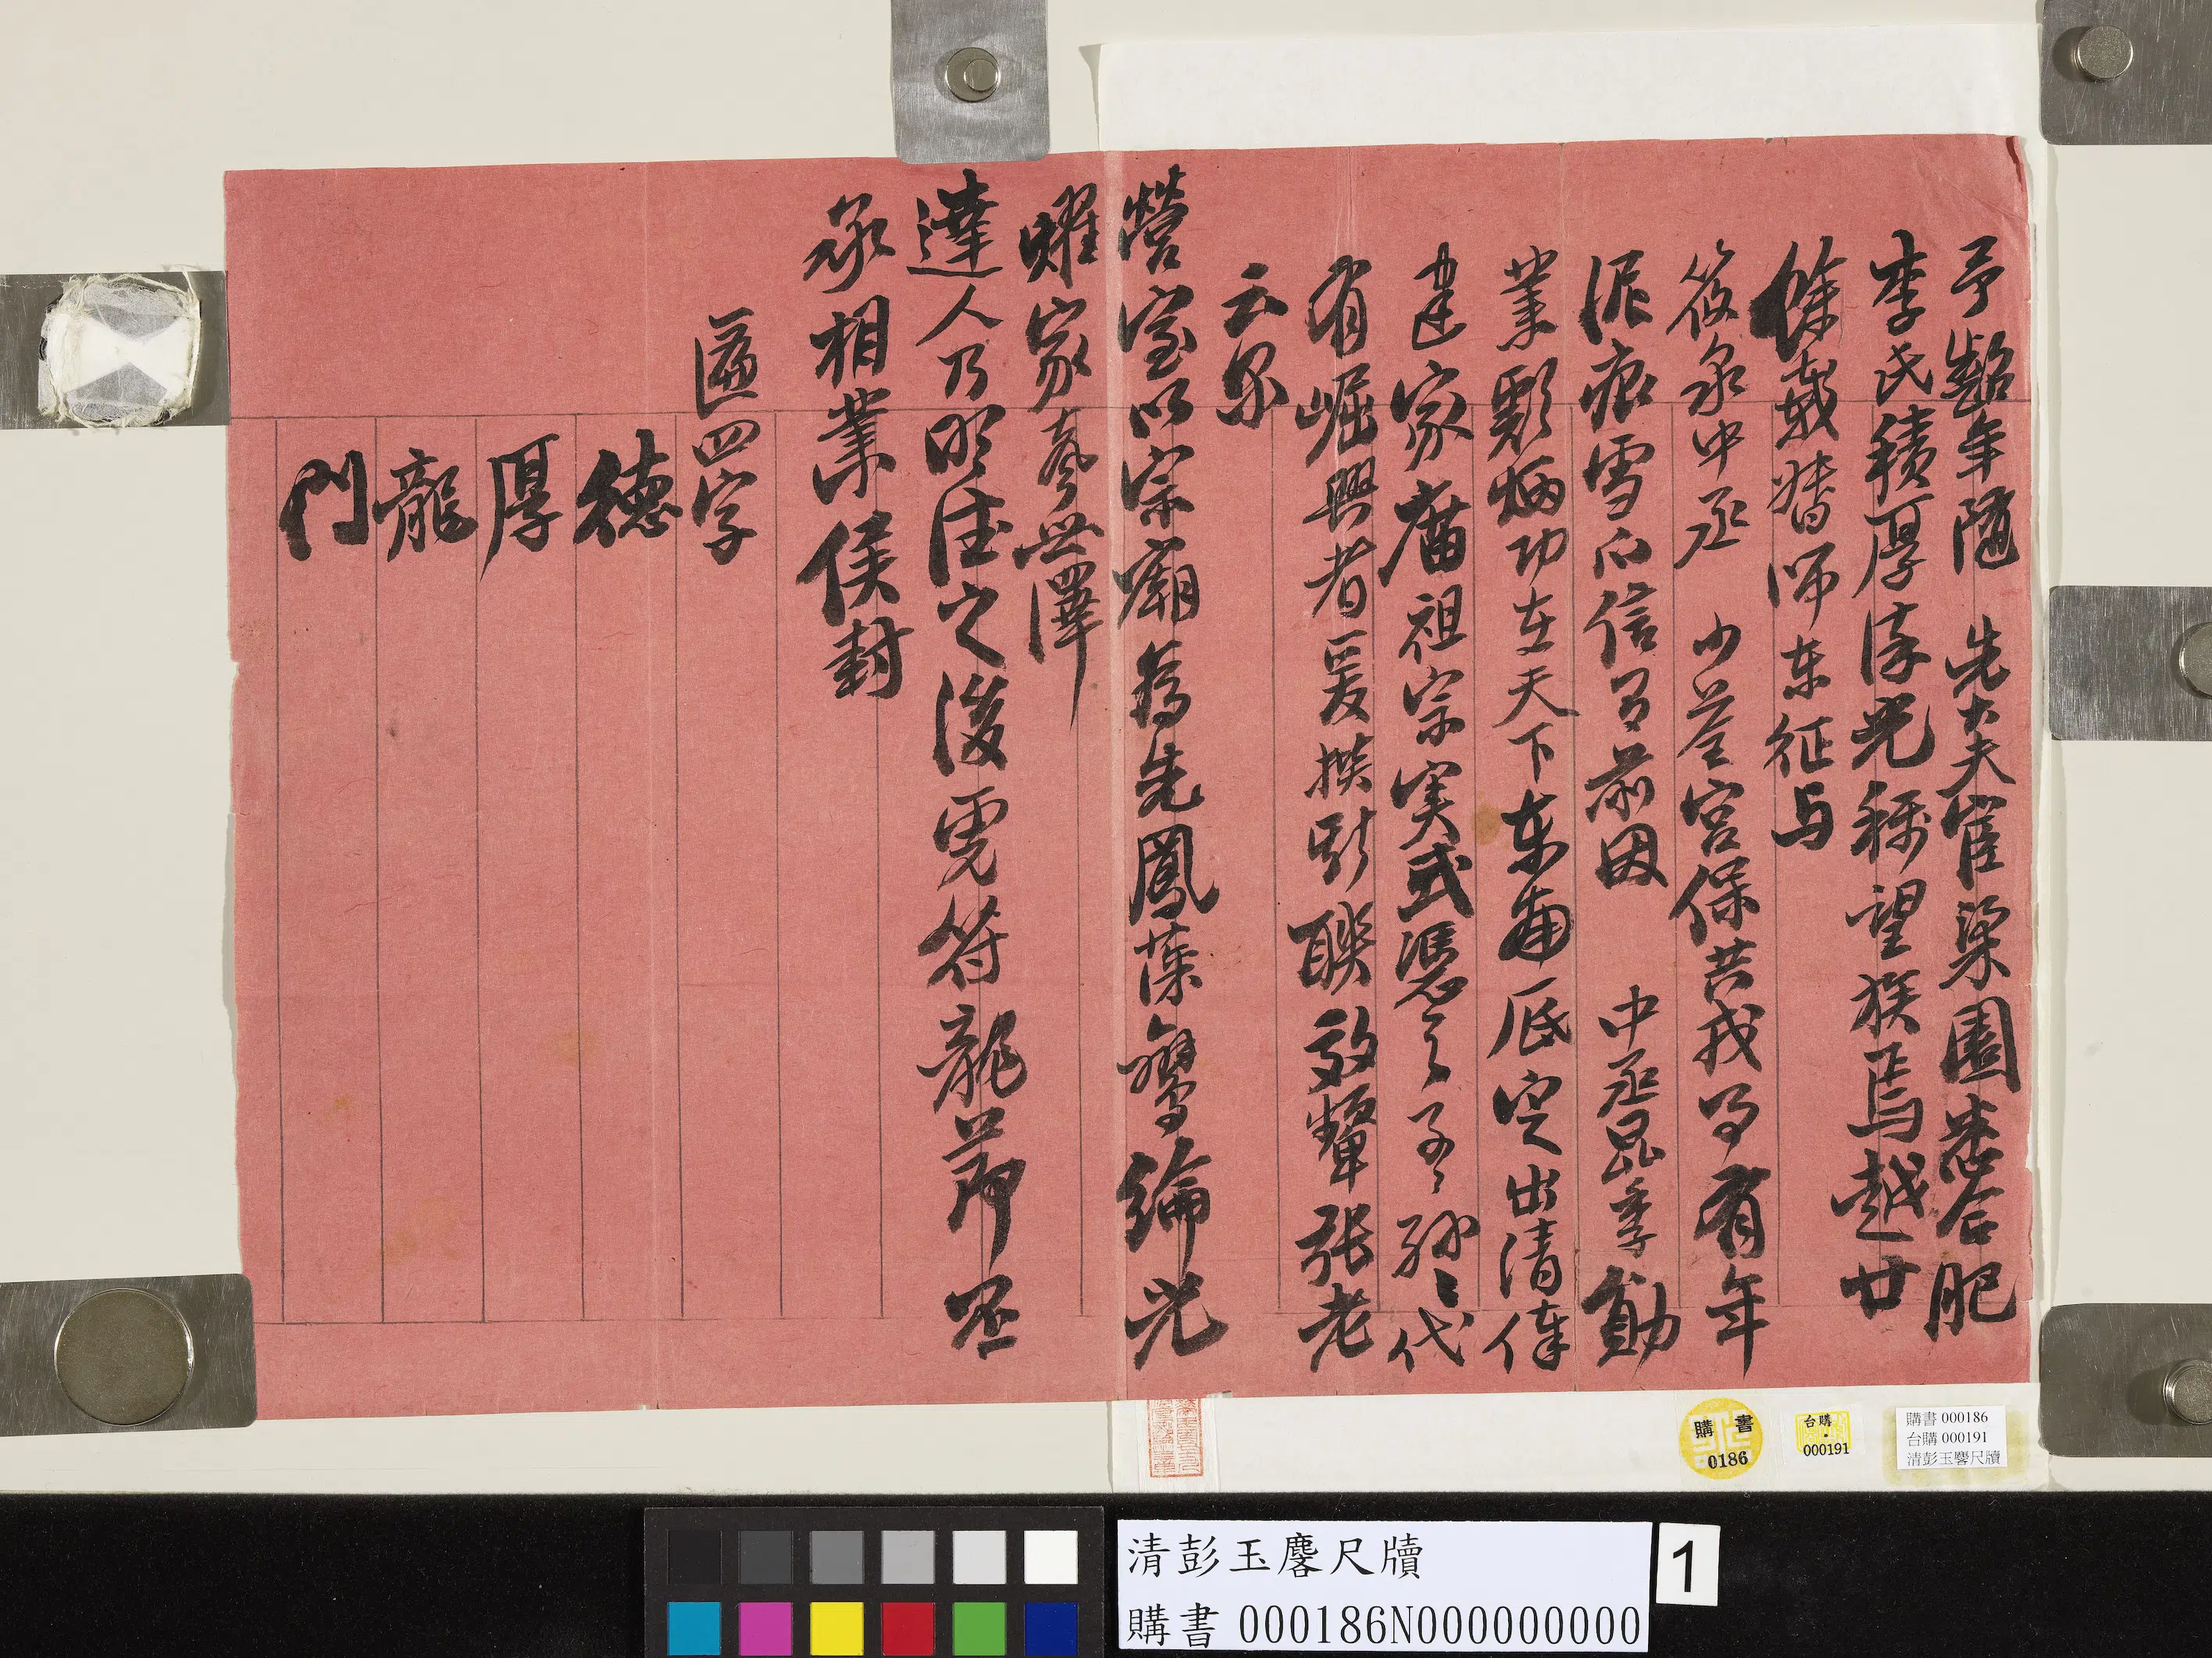 予齠年隨　先大夫宦梁園悉合肥
李氏積厚流光稱望族焉越廿
餘載督師東征与
筱泉中丞　少荃宮保共戎馬有年
泥痕雪爪信有前因　中丞昆季勳
業彪炳功在天下東南底定出清俸
建家廟祖宗實式憑之子子孫孫代
有崛興者爰撰斯聯效輩張老
云尔
營室以宗廟為先鳳藻鸞綸光
耀家聲世澤
達人乃明德之後虎符龍節丕
承相業侯封
匾四字
德
厚
龍
門
購書
0186
台購
000191
購書 000186
台購 000191
清彭玉麐尺牘
清彭玉麐尺牘
購書 000186N000000000
1